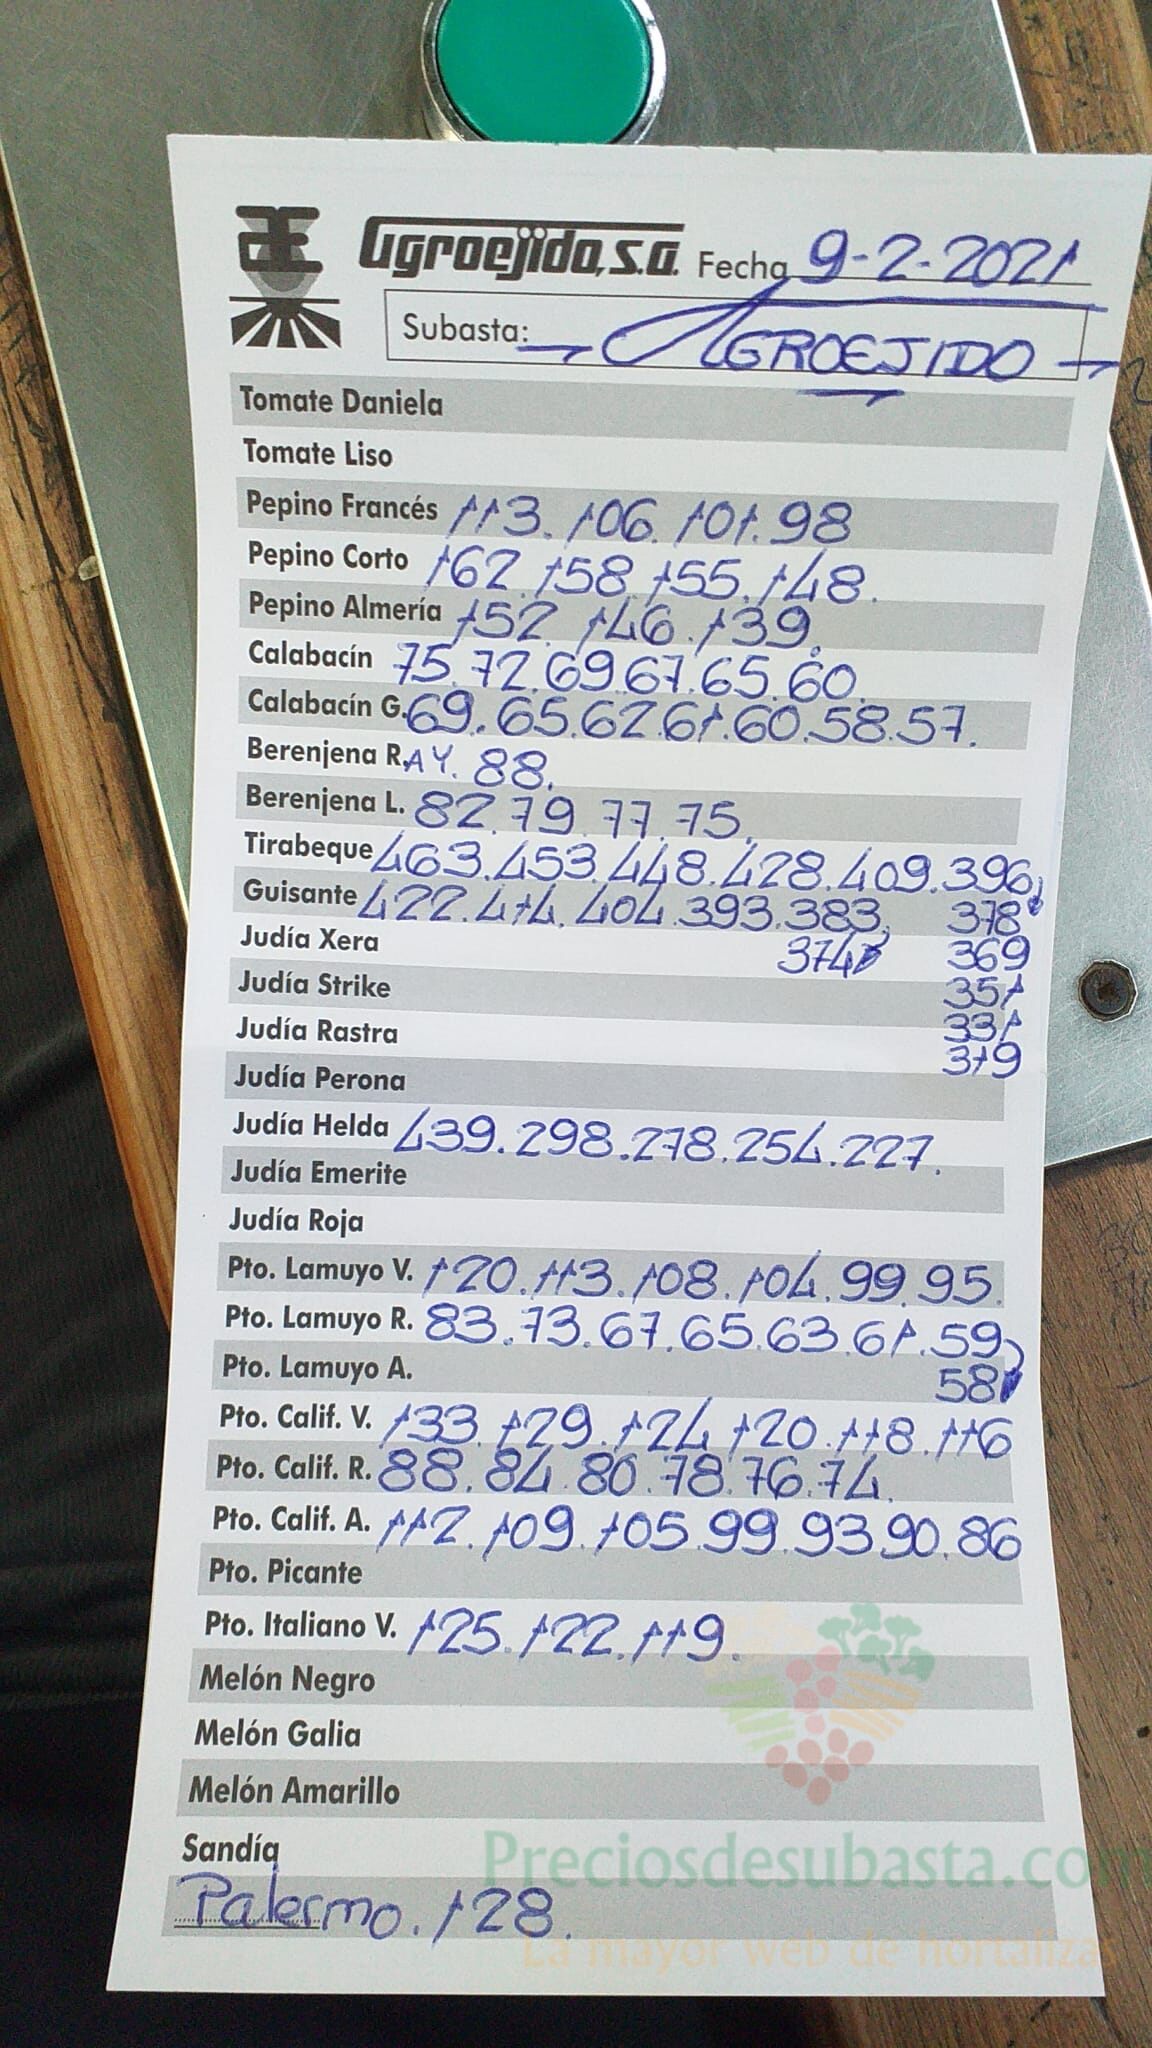 Agroejido, s.a. Fecha 9-2-2021
Subasta: AGROEJIDO
Tomate Daniela
Tomate Liso
Pepino Francés 113. 106. 101. 98
Pepino Corto 162. 158. 155. 148.
Pepino Almería 152. 146. 139.
Calabacín 75. 72. 69. 67. 65. 60.
Calabacín G. 69. 65. 62. 61. 60. 58. 57.
Berenjena R. AY. 88.
Berenjena L. 82. 79. 77. 75.
Tirabeque 463. 453. 448. 428. 409. 396,
Guisante 422. 414. 404. 393. 383, 378
Judía Xera 374 369
Judía Strike 351
Judía Rastra 331
319
Judía Perona
Judía Helda 439. 298. 278. 254. 227.
Judía Emerite
Judía Roja
Pto. Lamuyo V. 120. 113. 108. 104. 99. 95.
Pto. Lamuyo R. 83. 73. 67. 65. 63. 61. 59
Pto. Lamuyo A. 58
Pto. Calif. V. 133. 129. 124. 120. 118. 116
Pto. Calif. R. 88. 84. 80. 78. 76. 74.
Pto. Calif. A. 112. 109. 105. 99. 93. 90. 86
Pto. Picante
Pto. Italiano V. 125. 122. 119.
Melón Negro
Melón Galia
Melón Amarillo
Sandía
Preciosdesubasta.com
Palermo. 128.
La mayor web de hortalizas